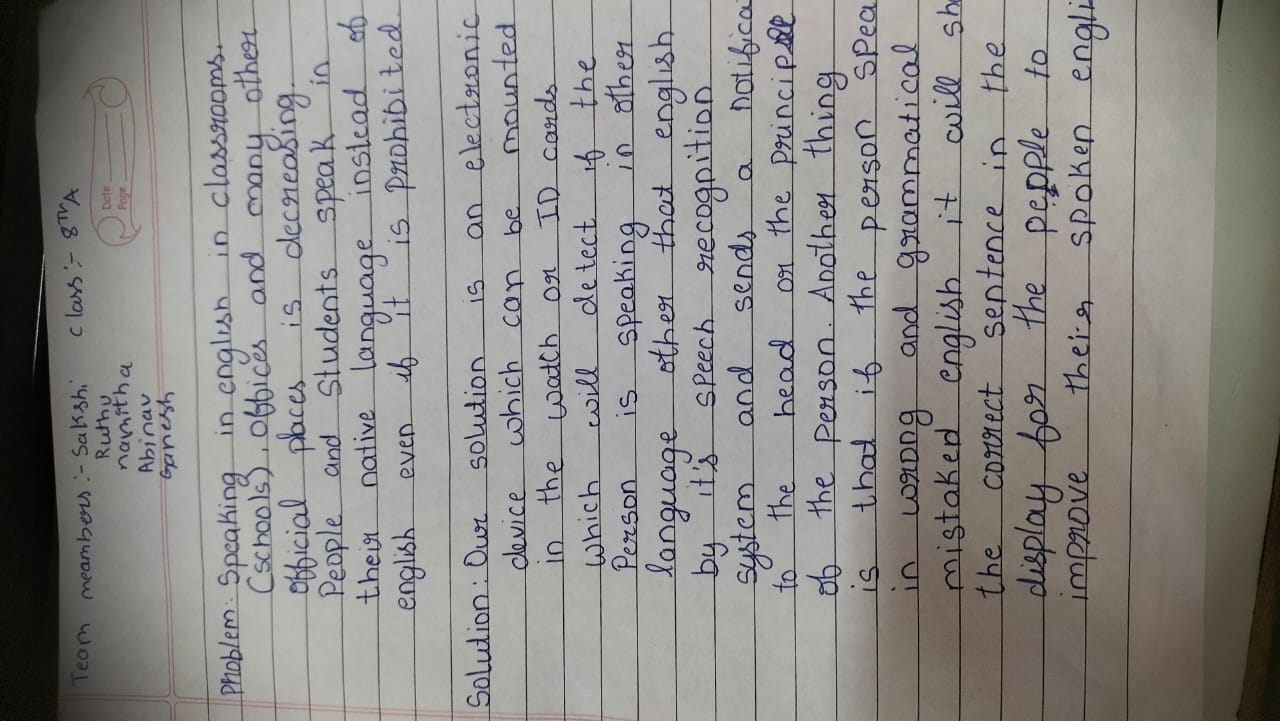 Team meambers:- Sakshi class:- 8th A
Ruthu
navnitha
Abinav
Ganesh
Date
Page
Problem: Speaking in english in classrooms
(schools), offices and many other
official places is decreasing
People and students speak in
their native language instead of
english even if it is prohibited
Solution: Our solution is an electronic
device which can be mounted
in the watch or ID cards
which will detect if the
Person is speaking in other
language other that english
by it's speech recognition
system and sends a notifica
to the head or the principle
of the person. Another thing
is that if the person spea
in wrong and grammatical
mistaked english it will sh
the correct sentence in the
display for the people to
improve their spoken engli